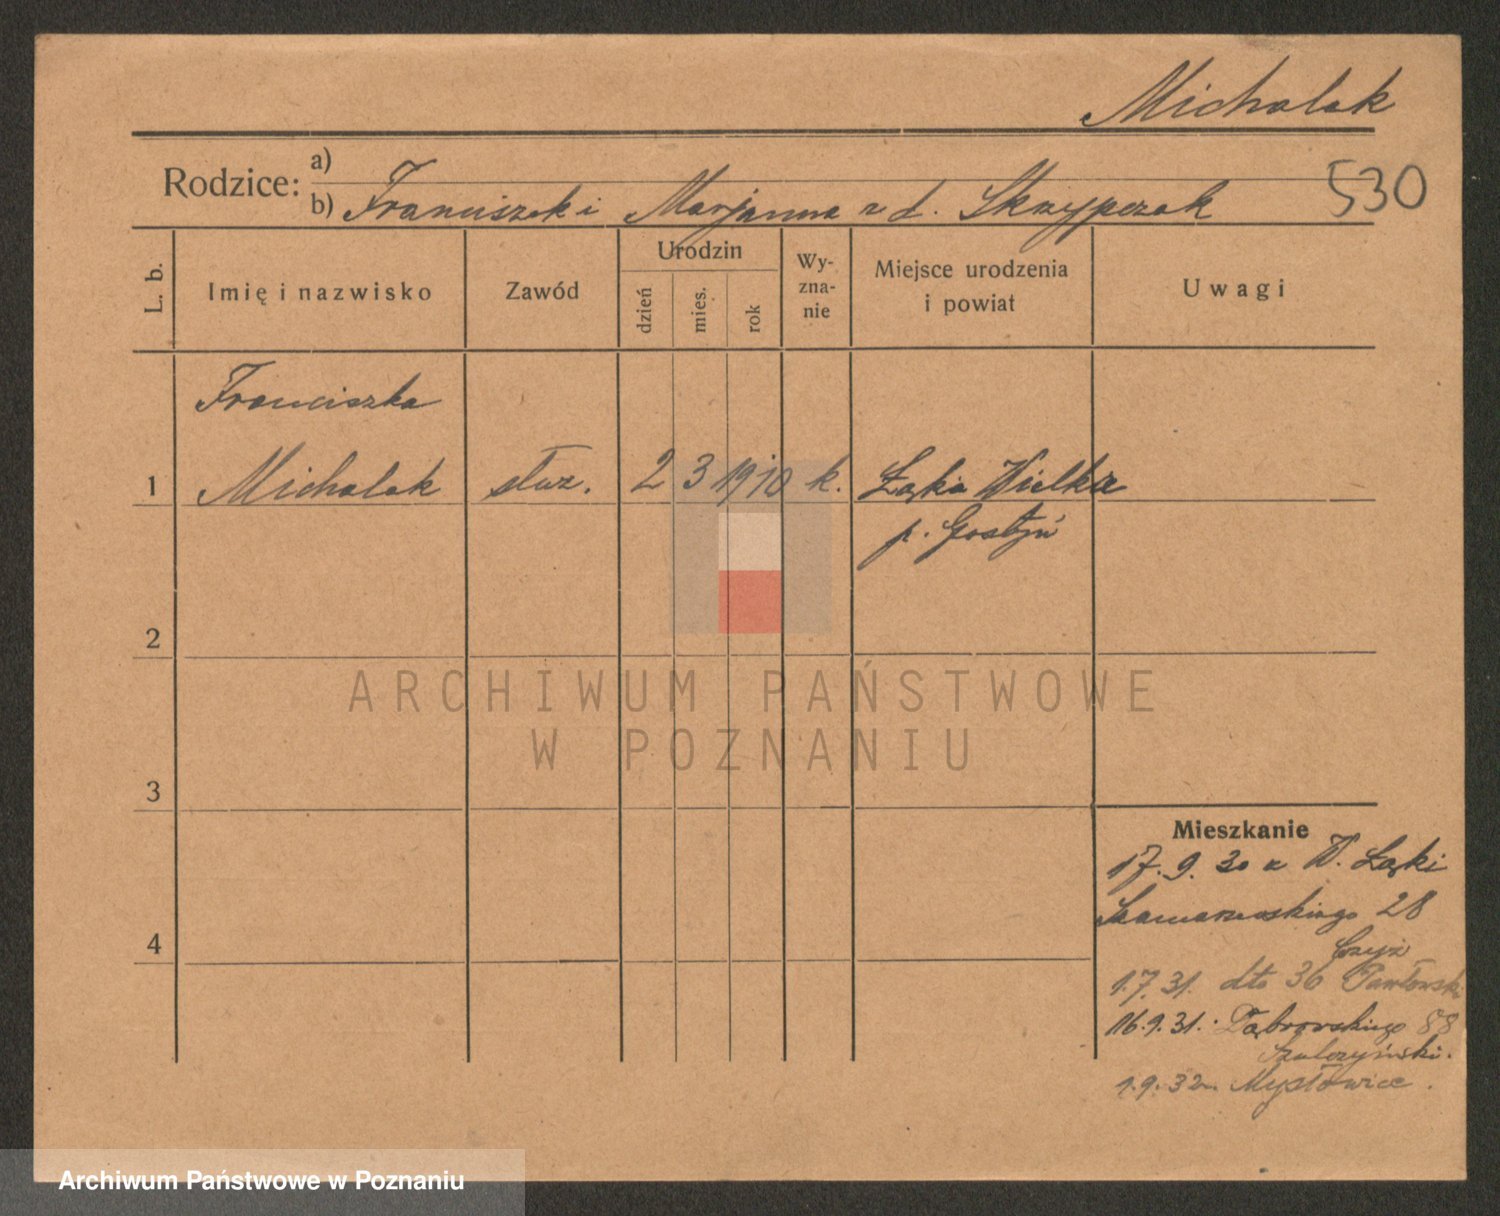 Michalak
Rodzice: a)
b) Franciszek i Marjanna z d. Skrzypczak
530
L. b.
Imię i nazwisko
Zawód
Urodzin
dzień
mies.
rok
Wy-
zna-
nie
Miejsce urodzenia
i powiat
Uwagi
Franciszka
1 Michalak służ. 2 3 1910 k. Łąka Wielka
p. Gostyń
2
3
4
Mieszkanie
17.9.30 z W. Łąki
Szamarzewskiego 28
Czyż
1.7.31. dto 36 Pawłowski
16.9.31. Dąbrowskiego 88
Szulczyński.
1.9.32 Mysłowice.
ARCHIWUM PAŃSTWOWE
W POZNANIU
Archiwum Państwowe w Poznaniu